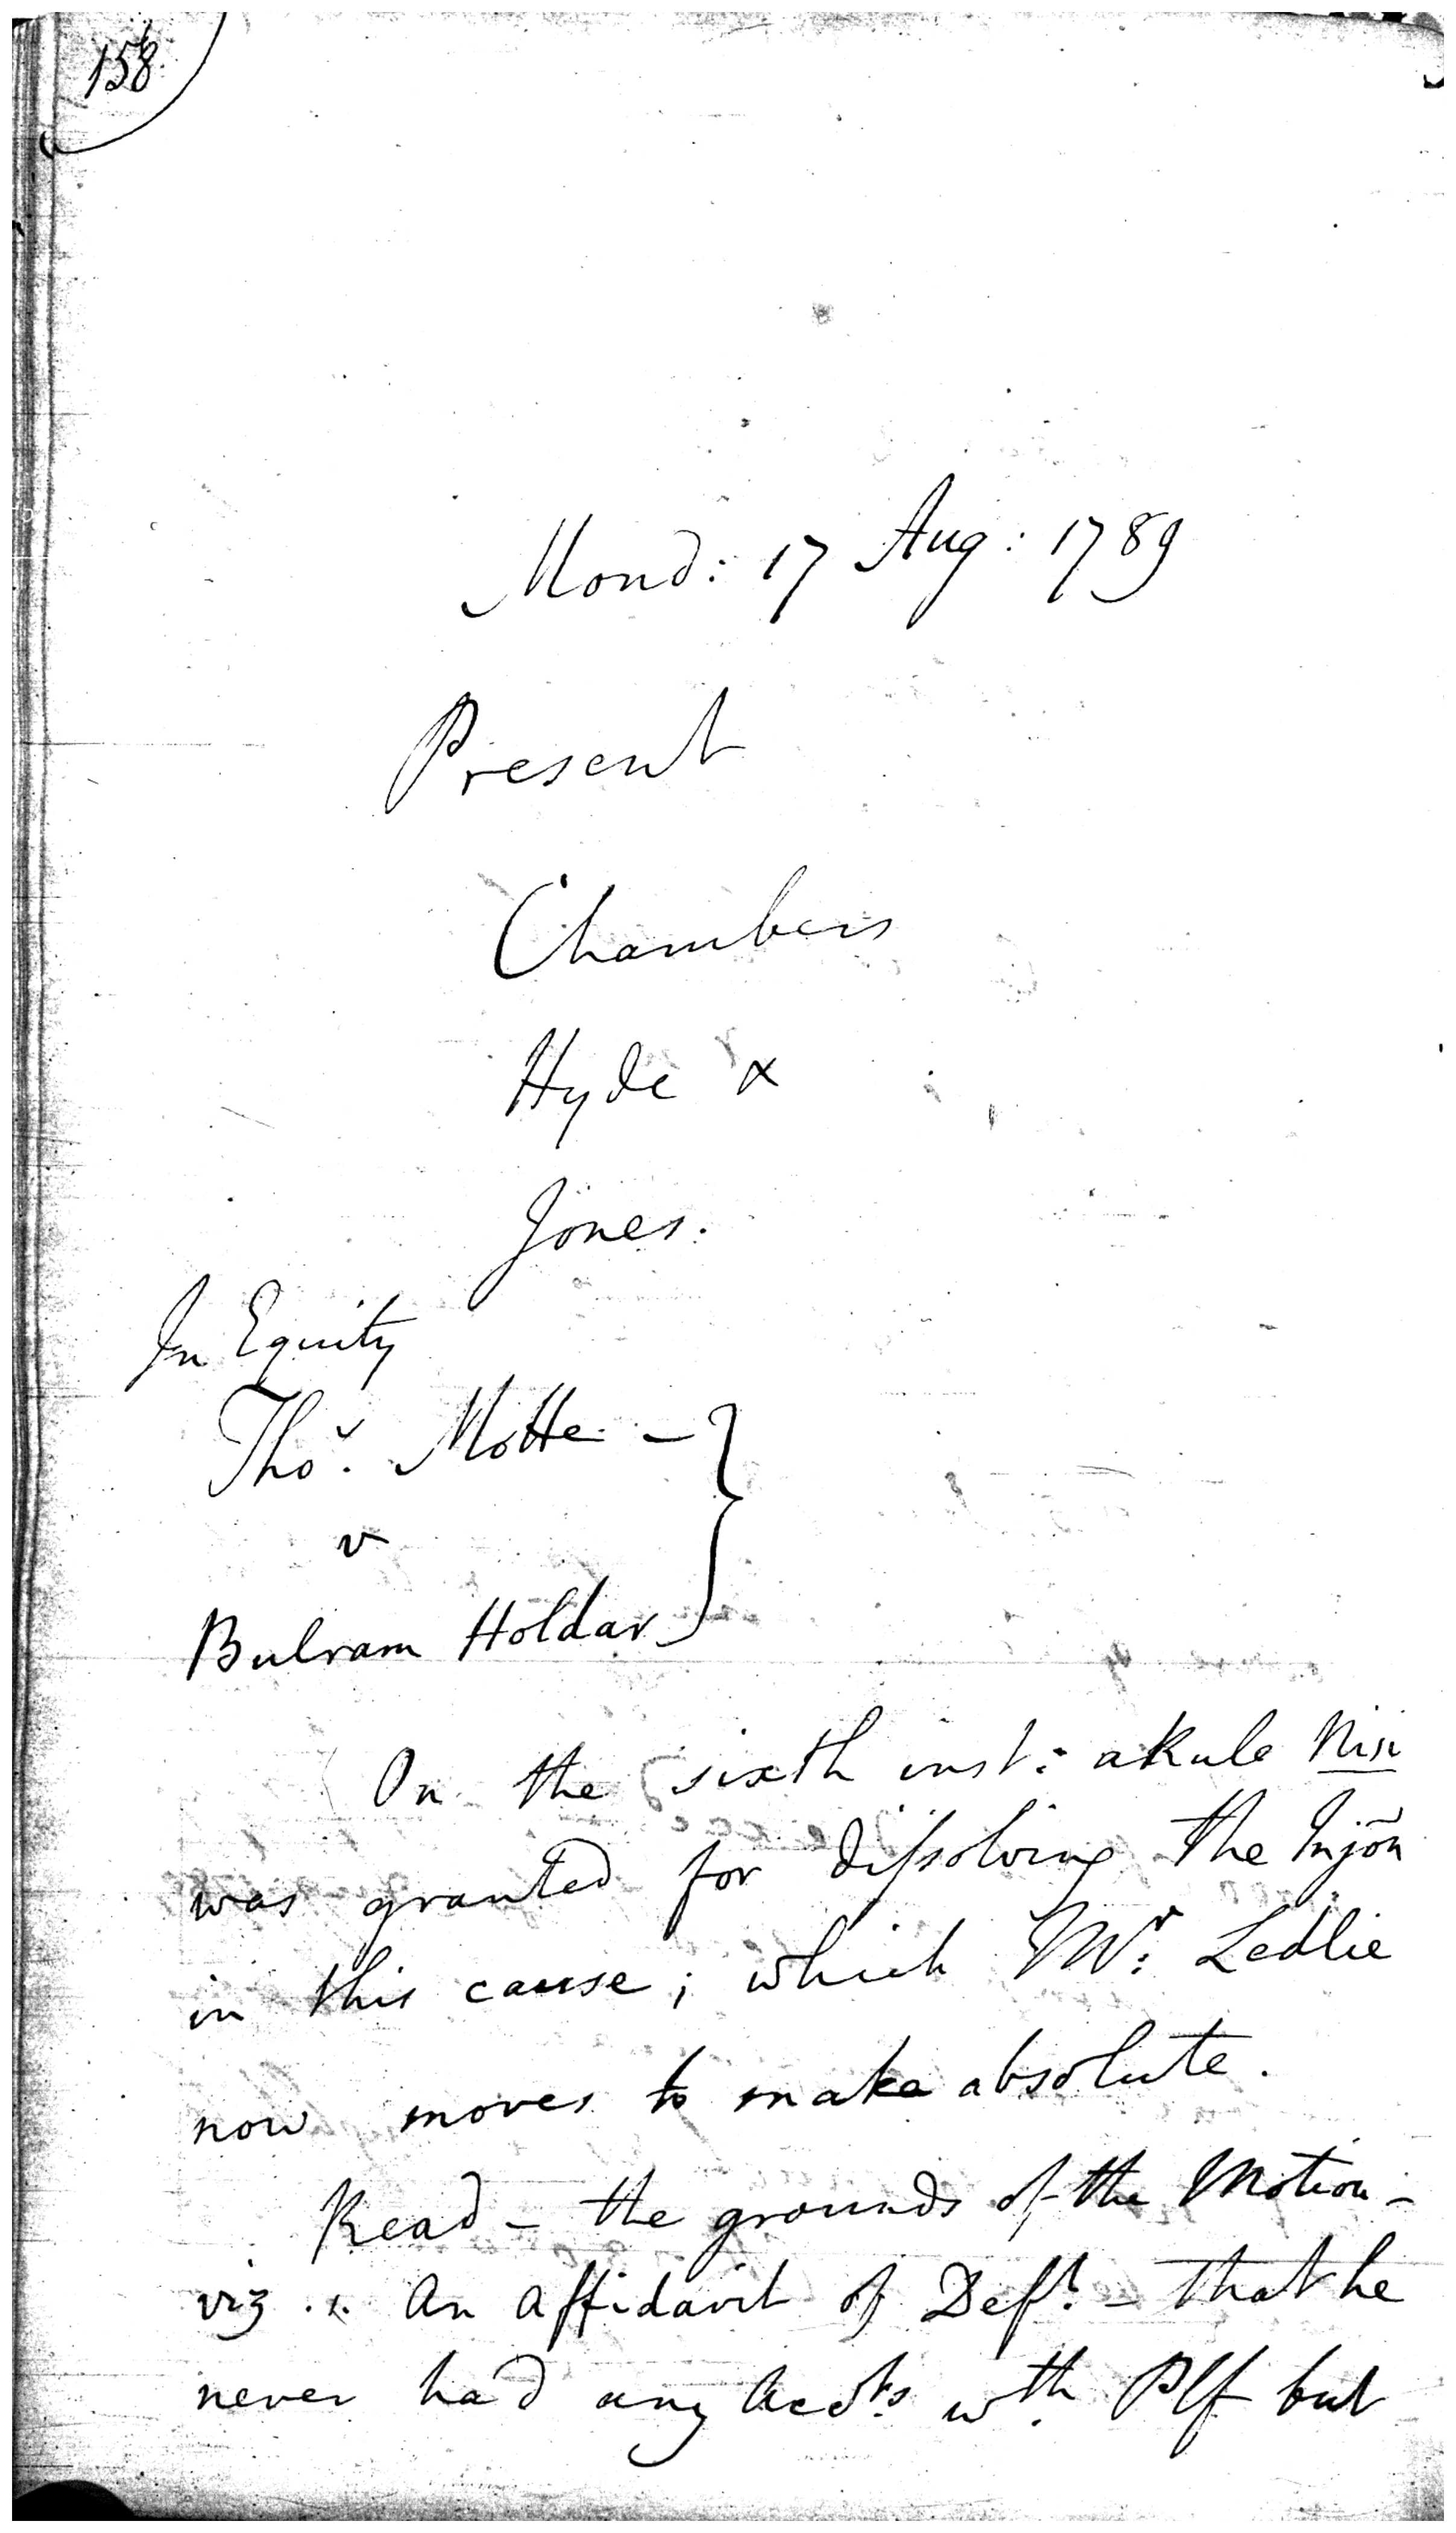 158
Mond: 17 Aug: 1789
Present
Chambers
Hyde &
Jones.
In Equity
Thos. Motte —
v
Bulram Holdar
On the sixth inst: a Rule Nisi
was granted for dissolving the Injōn
in this cause; which Mr: Ledlie
now moves to make absolute.
Read — the grounds of the Motion —
viz .. An Affidavit of Deft. — that he
never had any Accots wth. Plf but